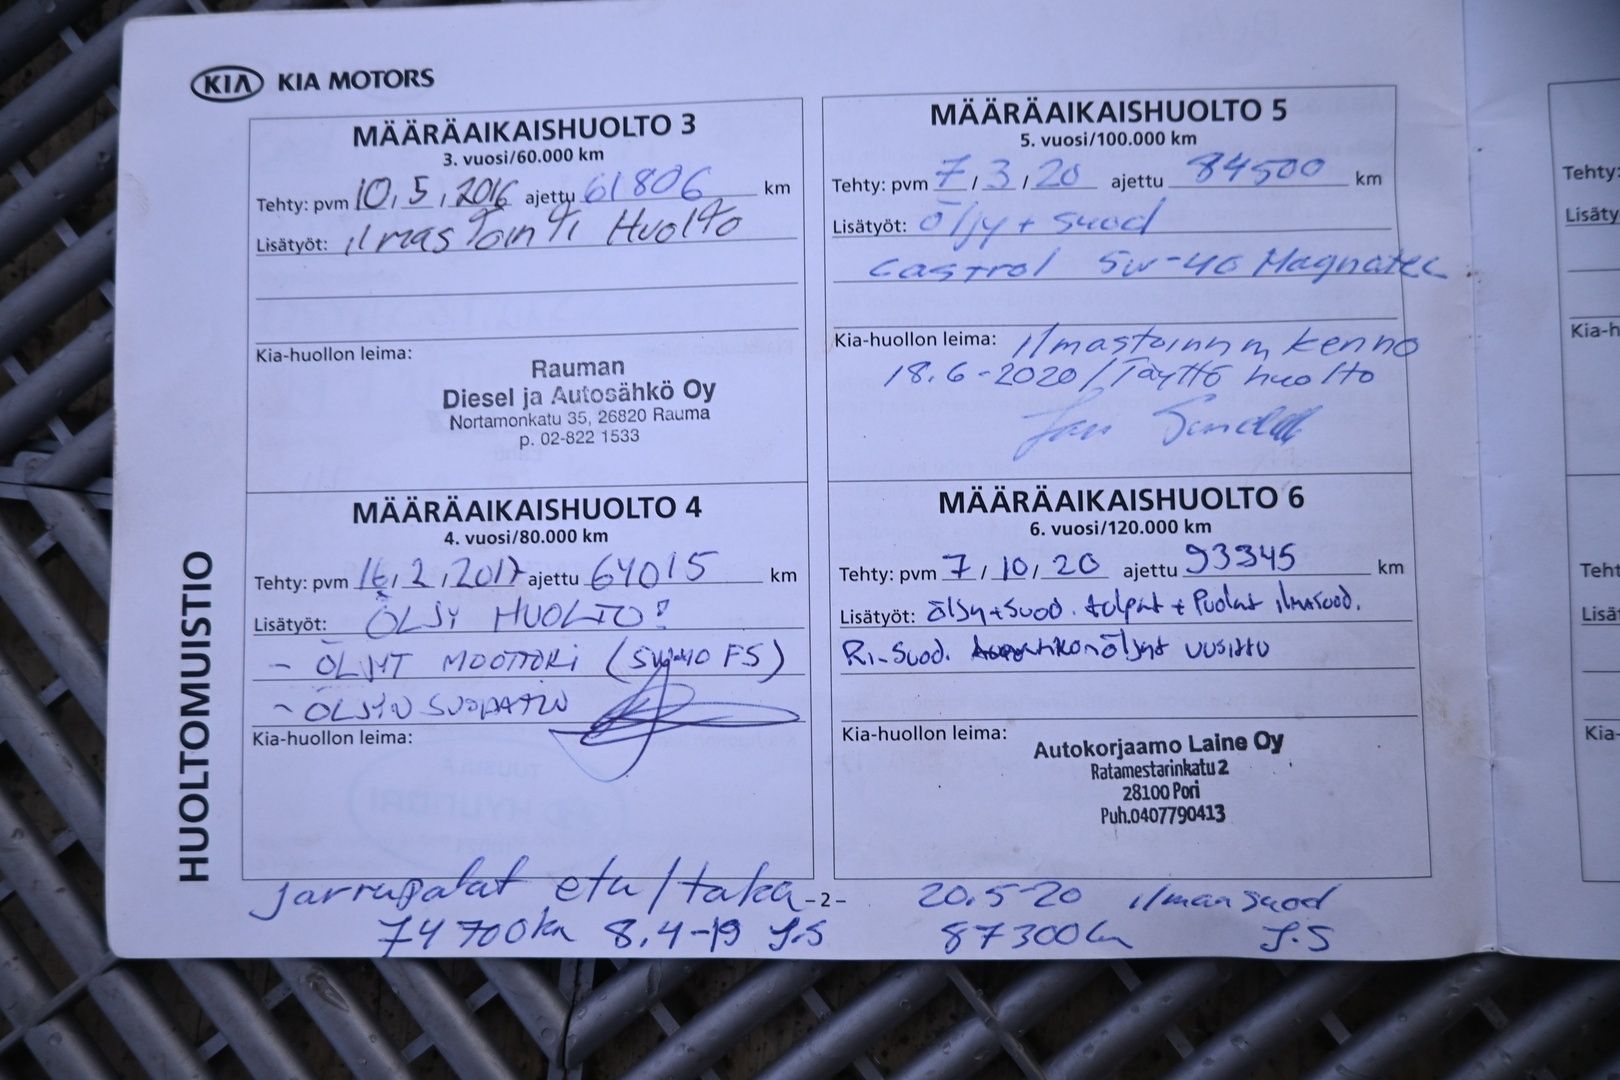 KIA KIA MOTORS
HUOLTOMUISTIO
MÄÄRÄAIKAISHUOLTO 3
3. vuosi/60.000 km
Tehty: pvm 10.5.2016 ajettu 61806 km
Lisätyöt: ilmastointi Huolto
Kia-huollon leima:
Rauman
Diesel ja Autosähkö Oy
Nortamonkatu 35, 26820 Rauma
p. 02-822 1533
MÄÄRÄAIKAISHUOLTO 4
4. vuosi/80.000 km
Tehty: pvm 16.2.2017 ajettu 64015 km
Lisätyöt: ÖLJY HUOLTO!
- ÖLJYT MOOTTORI (5W-40 FS)
- ÖLJYN SUODATIN
Kia-huollon leima:
jarrupalat etu/taka
74700km 8.4-19 J.S
MÄÄRÄAIKAISHUOLTO 5
5. vuosi/100.000 km
Tehty: pvm 7/3/20 ajettu 84500 km
Lisätyöt: Öljy + suod
Castrol 5w-40 Magnatec
Kia-huollon leima: Ilmastoinnin kenno
18.6-2020/Täyttö huolto
MÄÄRÄAIKAISHUOLTO 6
6. vuosi/120.000 km
Tehty: pvm 7/10/20 ajettu 93345 km
Lisätyöt: öljy+suod. tulpat + Puolat ilmasuod.
Ri-Suod. uusittu
Kia-huollon leima:
Autokorjaamo Laine Oy
Ratamestarinkatu 2
28100 Pori
Puh.0407790413
20.5-20 ilmansuod
87300km J.S
-2-
Tehty:
Lisäty
Kia-h
Teht
Lisä
Kia-